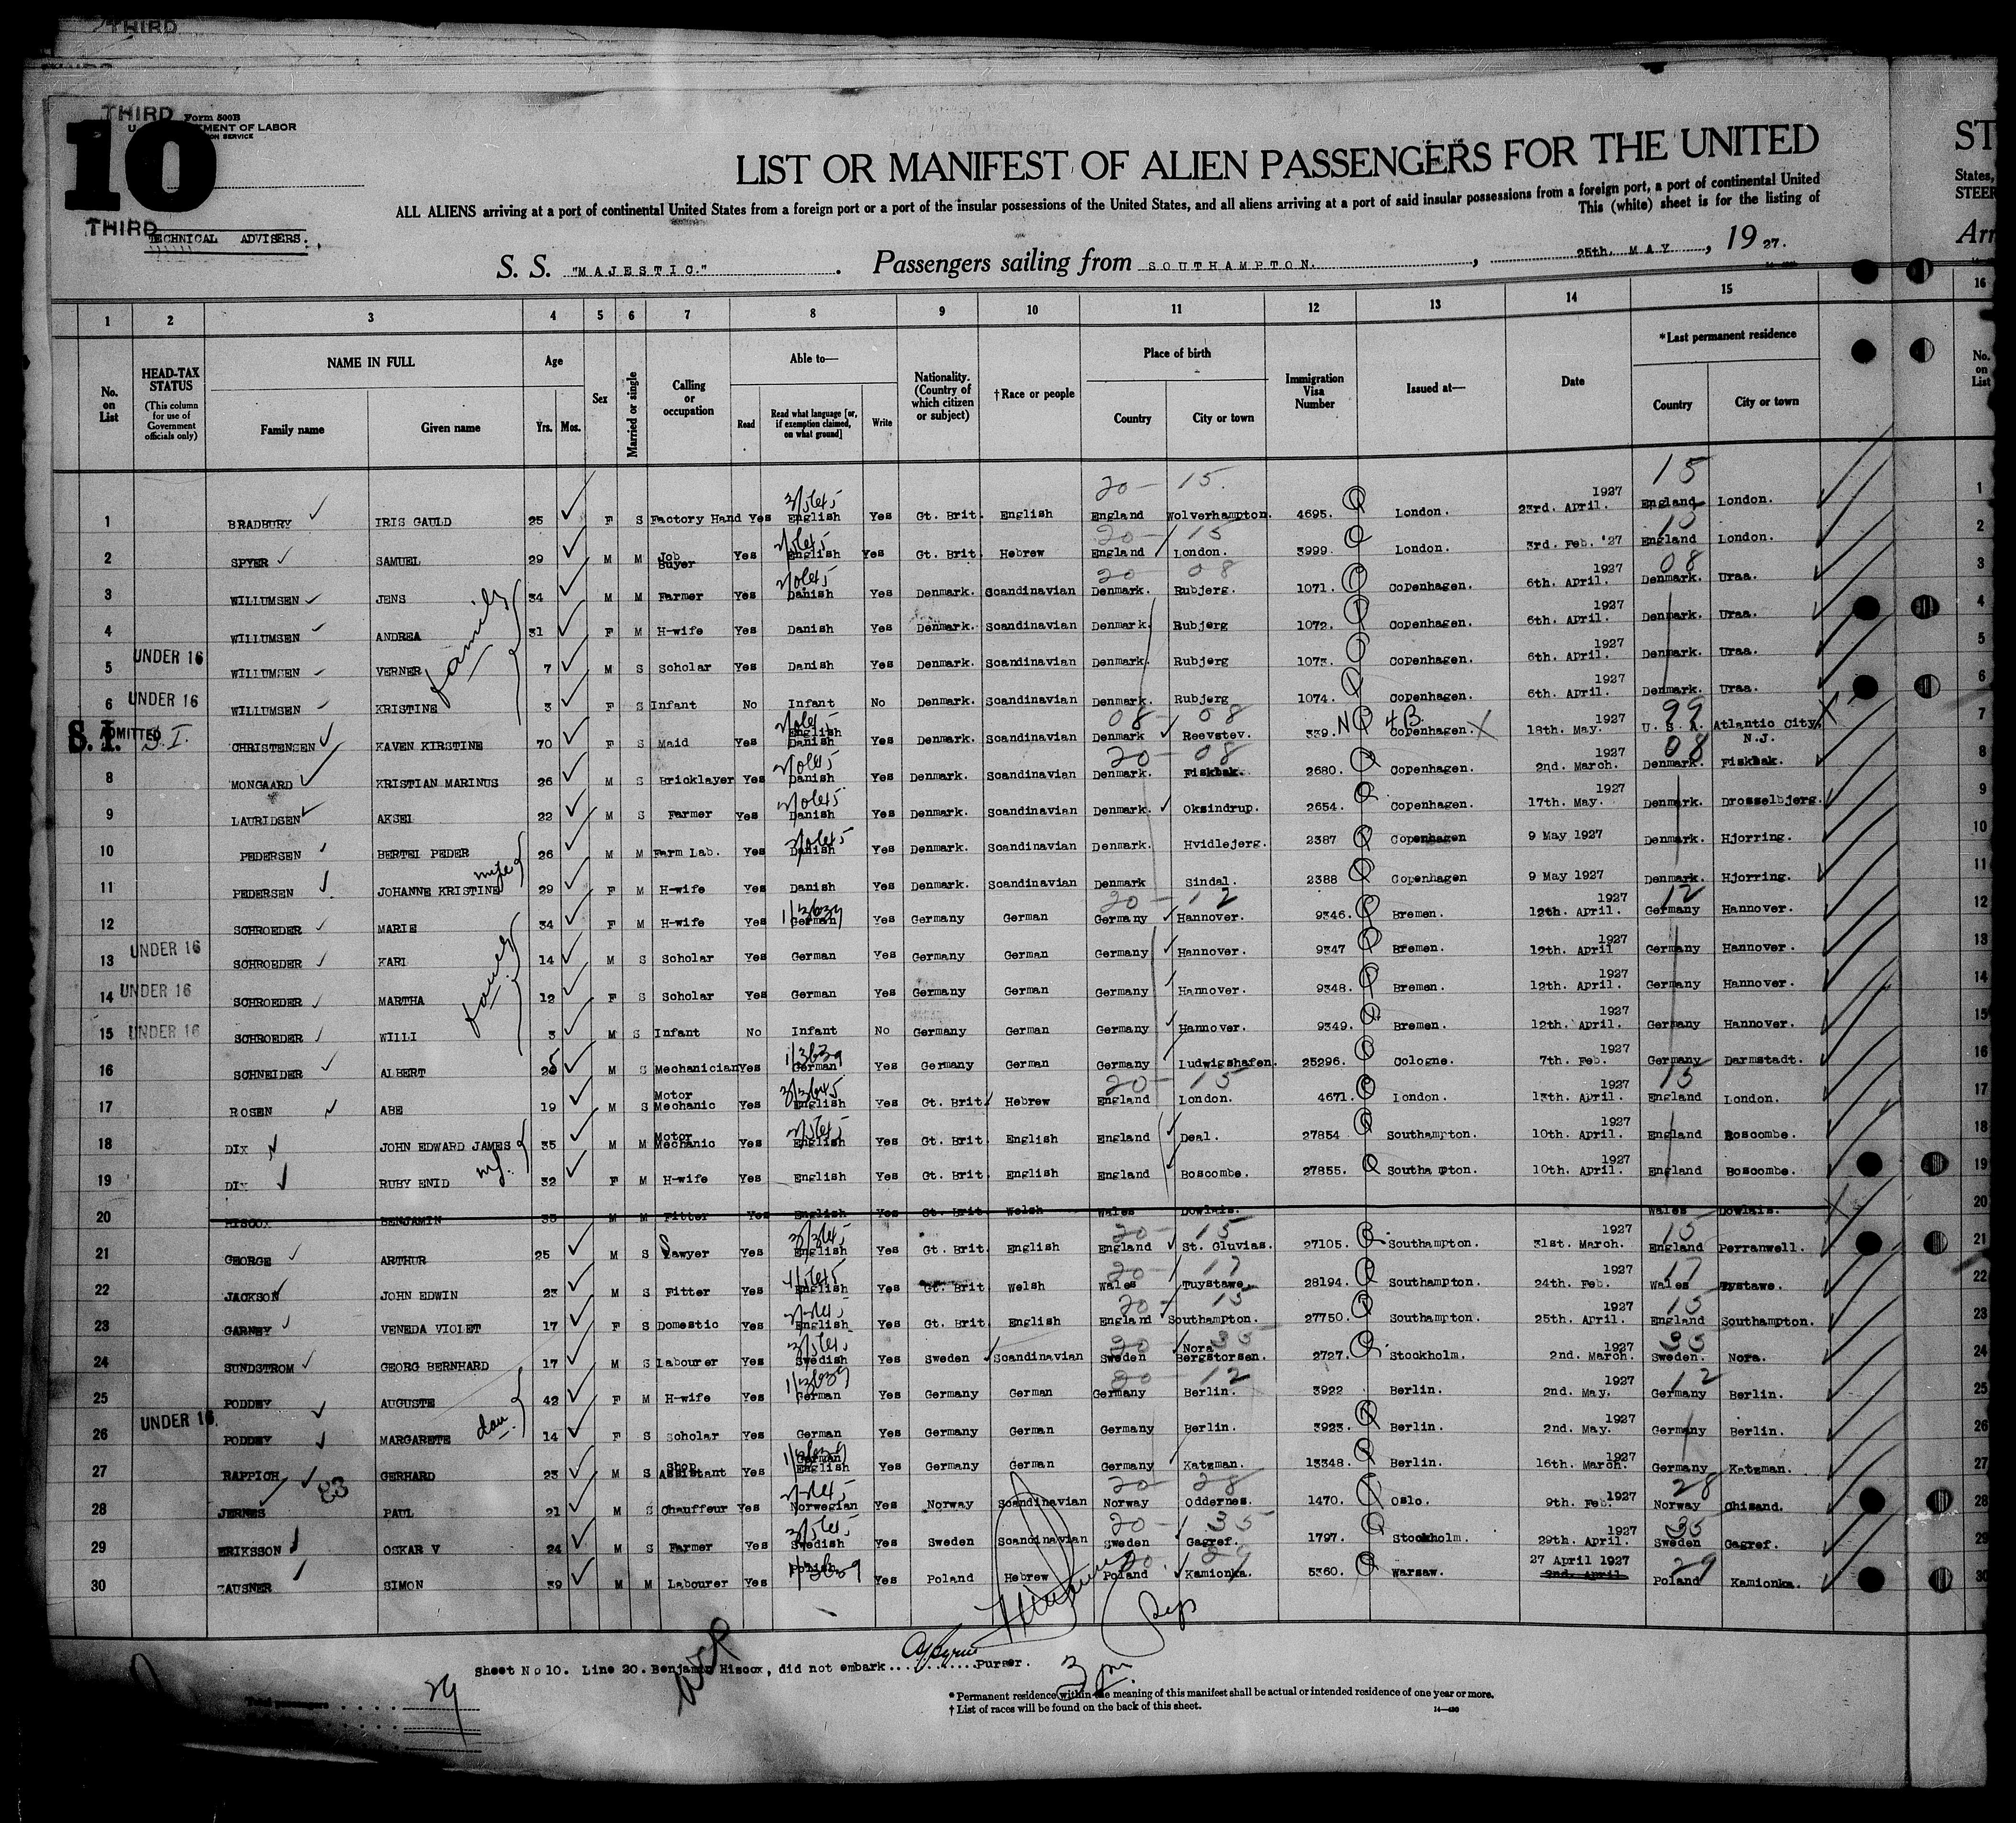 THIRD
THIRD Form 500B
10
U. MENT OF LABOR
ON SERVICE
THIRD
TECHNICAL ADVISERS.
LIST OR MANIFEST OF ALIEN PASSENGERS FOR THE UNITED
ST
ALL ALIENS arriving at a port of continental United States from a foreign port or a port of the insular possessions of the United States, and all aliens arriving at a port of said insular possessions from a foreign port, a port of continental United
States,
This (white) sheet is for the listing of
STEER
S. S. "MAJESTIC." Passengers sailing from SOUTHAMPTON. , 25th. MAY , 19 27.
Arr
1 2 3 4 5 6 7 8 9 10 11 12 13 14 15 16
No. on List
HEAD-TAX STATUS (This column for use of Government officials only)
NAME IN FULL Family name Given name
Age Yrs. Mos.
Sex
Married or single
Calling or occupation
Able to— Read Read what language [or, if exemption claimed, on what ground] Write
Nationality. (Country of which citizen or subject)
†Race or people
Place of birth Country City or town
Immigration Visa Number
Issued at—
Date
*Last permanent residence Country City or town
No. on List
20 - 15. 15
1 BRADBURY IRIS GAULD 25 F S Factory Hand Yes English Yes Gt. Brit. English England Wolverhampton. 4695. London. 23rd. April. 1927 England London. 1
20 - 15 15
2 SPYER SAMUEL 29 M M Job Buyer Yes English Yes Gt. Brit. Hebrew England London. 3999. London. 3rd. Feb. '27 England London. 2
20 08 08
3 WILLUMSEN JENS family 34 M M Farmer Yes Danish Yes Denmark. Scandinavian Denmark. Rubjerg. 1071. Copenhagen. 6th. April. 1927 Denmark. Uraa. 3
4 WILLUMSEN ANDREA 31 F M H-wife Yes Danish Yes Denmark. Scandinavian Denmark. Rubjerg 1072. Copenhagen. 6th. April. 1927 Denmark. Uraa. 4
5 UNDER 16 WILLUMSEN VERNER 7 M S Scholar Yes Danish Yes Denmark. Scandinavian Denmark. Rubjerg 1073. Copenhagen. 6th. April. 1927 Denmark. Uraa. 5
6 UNDER 16 WILLUMSEN KRISTINE 3 F S Infant No Infant No Denmark. Scandinavian Denmark. Rubjerg 1074. Copenhagen. 6th. April. 1927 Denmark. Uraa. 6
08 - 08 99
S.I. ADMITTED S.I. CHRISTENSEN KAVEN KIRSTINE 70 F S Maid Yes English Danish Yes Denmark. Scandinavian Denmark Reevstev. 339. N 4B Copenhagen. 18th. May. 1927 U. S. A. Atlantic City, N.J. 7
20 - 08 08
8 MONGAARD KRISTIAN MARINUS 26 M S Bricklayer Yes Danish Yes Denmark. Scandinavian Denmark. Fiskbak. 2680. Copenhagen. 2nd. March. 1927 Denmark. Fiskbak. 8
9 LAURIDSEN AKSEL 22 M S Farmer Yes Danish Yes Denmark. Scandinavian Denmark. Oksindrup. 2654. Copenhagen. 17th. May. 1927 Denmark. Drosselbjerg. 9
10 PEDERSEN BERTEL PEDER 26 M M Farm Lab. Yes Danish Yes Denmark. Scandinavian Denmark. Hvidlejerg. 2387 Copenhagen 9 May 1927 Denmark. Hjorring. 10
11 PEDERSEN JOHANNE KRISTINE wife 29 F M H-wife Yes Danish Yes Denmark. Scandinavian Denmark Sindal. 2388 Copenhagen 9 May 1927 Denmark. Hjorring. 11
20 - 12 12
12 SCHROEDER MARIE 34 F M H-wife Yes German Yes Germany German Germany Hannover. 9346. Bremen. 12th. April. 1927 Germany Hannover. 12
13 UNDER 16 SCHROEDER KARL 14 M S Scholar Yes German Yes Germany German Germany Hannover. 9347 Bremen. 12th. April 1927 Germany Hannover. 13
14 UNDER 16 SCHROEDER MARTHA 12 F S Scholar Yes German Yes Germany German Germany Hannover. 9348. Bremen. 12th. April. 1927 Germany Hannover. 14
15 UNDER 16 SCHROEDER WILLI 3 M S Infant No Infant No Germany German Germany Hannover. 9349. Bremen. 12th. April. 1927 Germany Hannover. 15
16 SCHNEIDER ALBERT M S Mechanician Yes German Yes Germany German Germany Ludwigshafen. 25296. Cologne. 7th. Feb. 1927 Germany Darmstadt. 16
20 - 15 15
17 ROSEN ABE 19 M S Motor Mechanic Yes English Yes Gt. Brit. Hebrew England London. 4671. London. 13th. April. 1927 England London. 17
18 DIX JOHN EDWARD JAMES 35 M M Motor Mechanic Yes English Yes Gt. Brit. English England Deal. 27854 Southampton. 10th. April. 1927 England Boscombe. 18
19 DIX RUBY ENID wf. 32 F M H-wife Yes English Yes Gt. Brit. English England Boscombe. 27855. Southa pton. 10th. April. 1927 England Boscombe. 19
20 HISCOX BENJAMIN 35 M M Fitter Yes English Yes Gt. Brit. Welsh Wales Dowlais. Wales Dowlais. 20
20 - 15 15
21 GEORGE ARTHUR 25 M S Sawyer Yes English Yes Gt. Brit. English England St. Gluvias. 27105. Southampton. 31st. March. 1927 England Perranwell. 21
20 - 17 17
22 JACKSON JOHN EDWIN 23 M S Fitter Yes English Yes Gt. Brit Welsh Wales Tuystawe. 28194. Southampton. 24th. Feb. 1927 Wales Tystawe. 22
20 - 15 15
23 GARNEY VENEDA VIOLET 17 F S Domestic Yes English Yes Gt. Brit. English England Southampton. 27750. Southampton. 25th. April. 1927 England Southampton. 23
20 35 35
24 SUNDSTROM GEORG BERNHARD 17 M S Labourer Yes Swedish Yes Sweden Scandinavian Sweden Nora Bergstorsen. 2727. Stockholm. 2nd. March. 1927 Sweden. Nora. 24
20 - 12 12
25 PODDEY AUGUSTE 42 F M H-wife Yes German Yes Germany German Germany Berlin. 3922 Berlin. 2nd. May. 1927 Germany Berlin. 25
26 UNDER 16. PODDEY MARGARETE dau. 14 F S Scholar Yes German Yes Germany German Germany Berlin. 3923. Berlin. 2nd. May. 1927 Germany Berlin. 26
27 RAPPICH GERHARD 23 M S Shop Assistant Yes German English Yes Germany German Germany Katzman. 13348. Berlin. 16th. March. 1927 Germany Katzman. 27
83 20 - 28 28
28 JERNES PAUL 21 M S Chauffeur Yes Norwegian Yes Norway Scandinavian Norway Oddernes. 1470. Oslo. 9th. Feb. 1927 Norway Chisand. 28
20 - 35 35
29 ERIKSSON OSKAR V 24 M S Farmer Yes Swedish Yes Sweden Scandinavian Sweden Gagref. 1797. Stockholm. 29th. April. 1927 Sweden Gagref. 29
20. 29
30 AUSNER SIMON 39 M M Labourer Yes Polish Yes Poland Hebrew Poland Kamionka. 5360. Warsaw. 27 April 1927 2nd. April Poland Kamionka. 30
Sheet No 10. Line 20. Benjamin Hiscox, did not embark............Purser.
Total passengers . . . . 29
* Permanent residence within the meaning of this manifest shall be actual or intended residence of one year or more.
† List of races will be found on the back of this sheet.
14—430